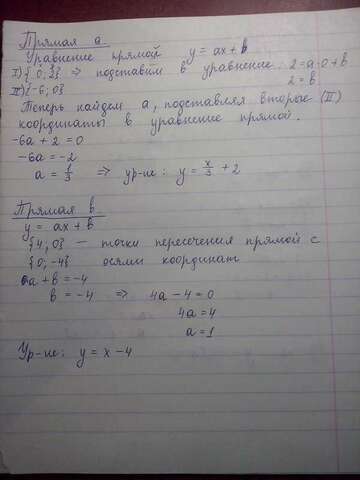 Прямая a
Уравнение прямой y = ax + b
I) {0; 2} => подставим в уравнение 2 = a·0 + b
2 = b
II) {-6; 0}
Теперь найдем a, подставляя вторые (II)
координаты в уравнение прямой.
-6a + 2 = 0
-6a = -2
a = 1/3 => ур-ие: y = x/3 + 2
Прямая b
y = ax + b
{4; 0} — точки пересечения прямой с
{0; -4} осями координат
0a + b = -4
b = -4 => 4a - 4 = 0
4a = 4
a = 1
Ур-ие: y = x - 4